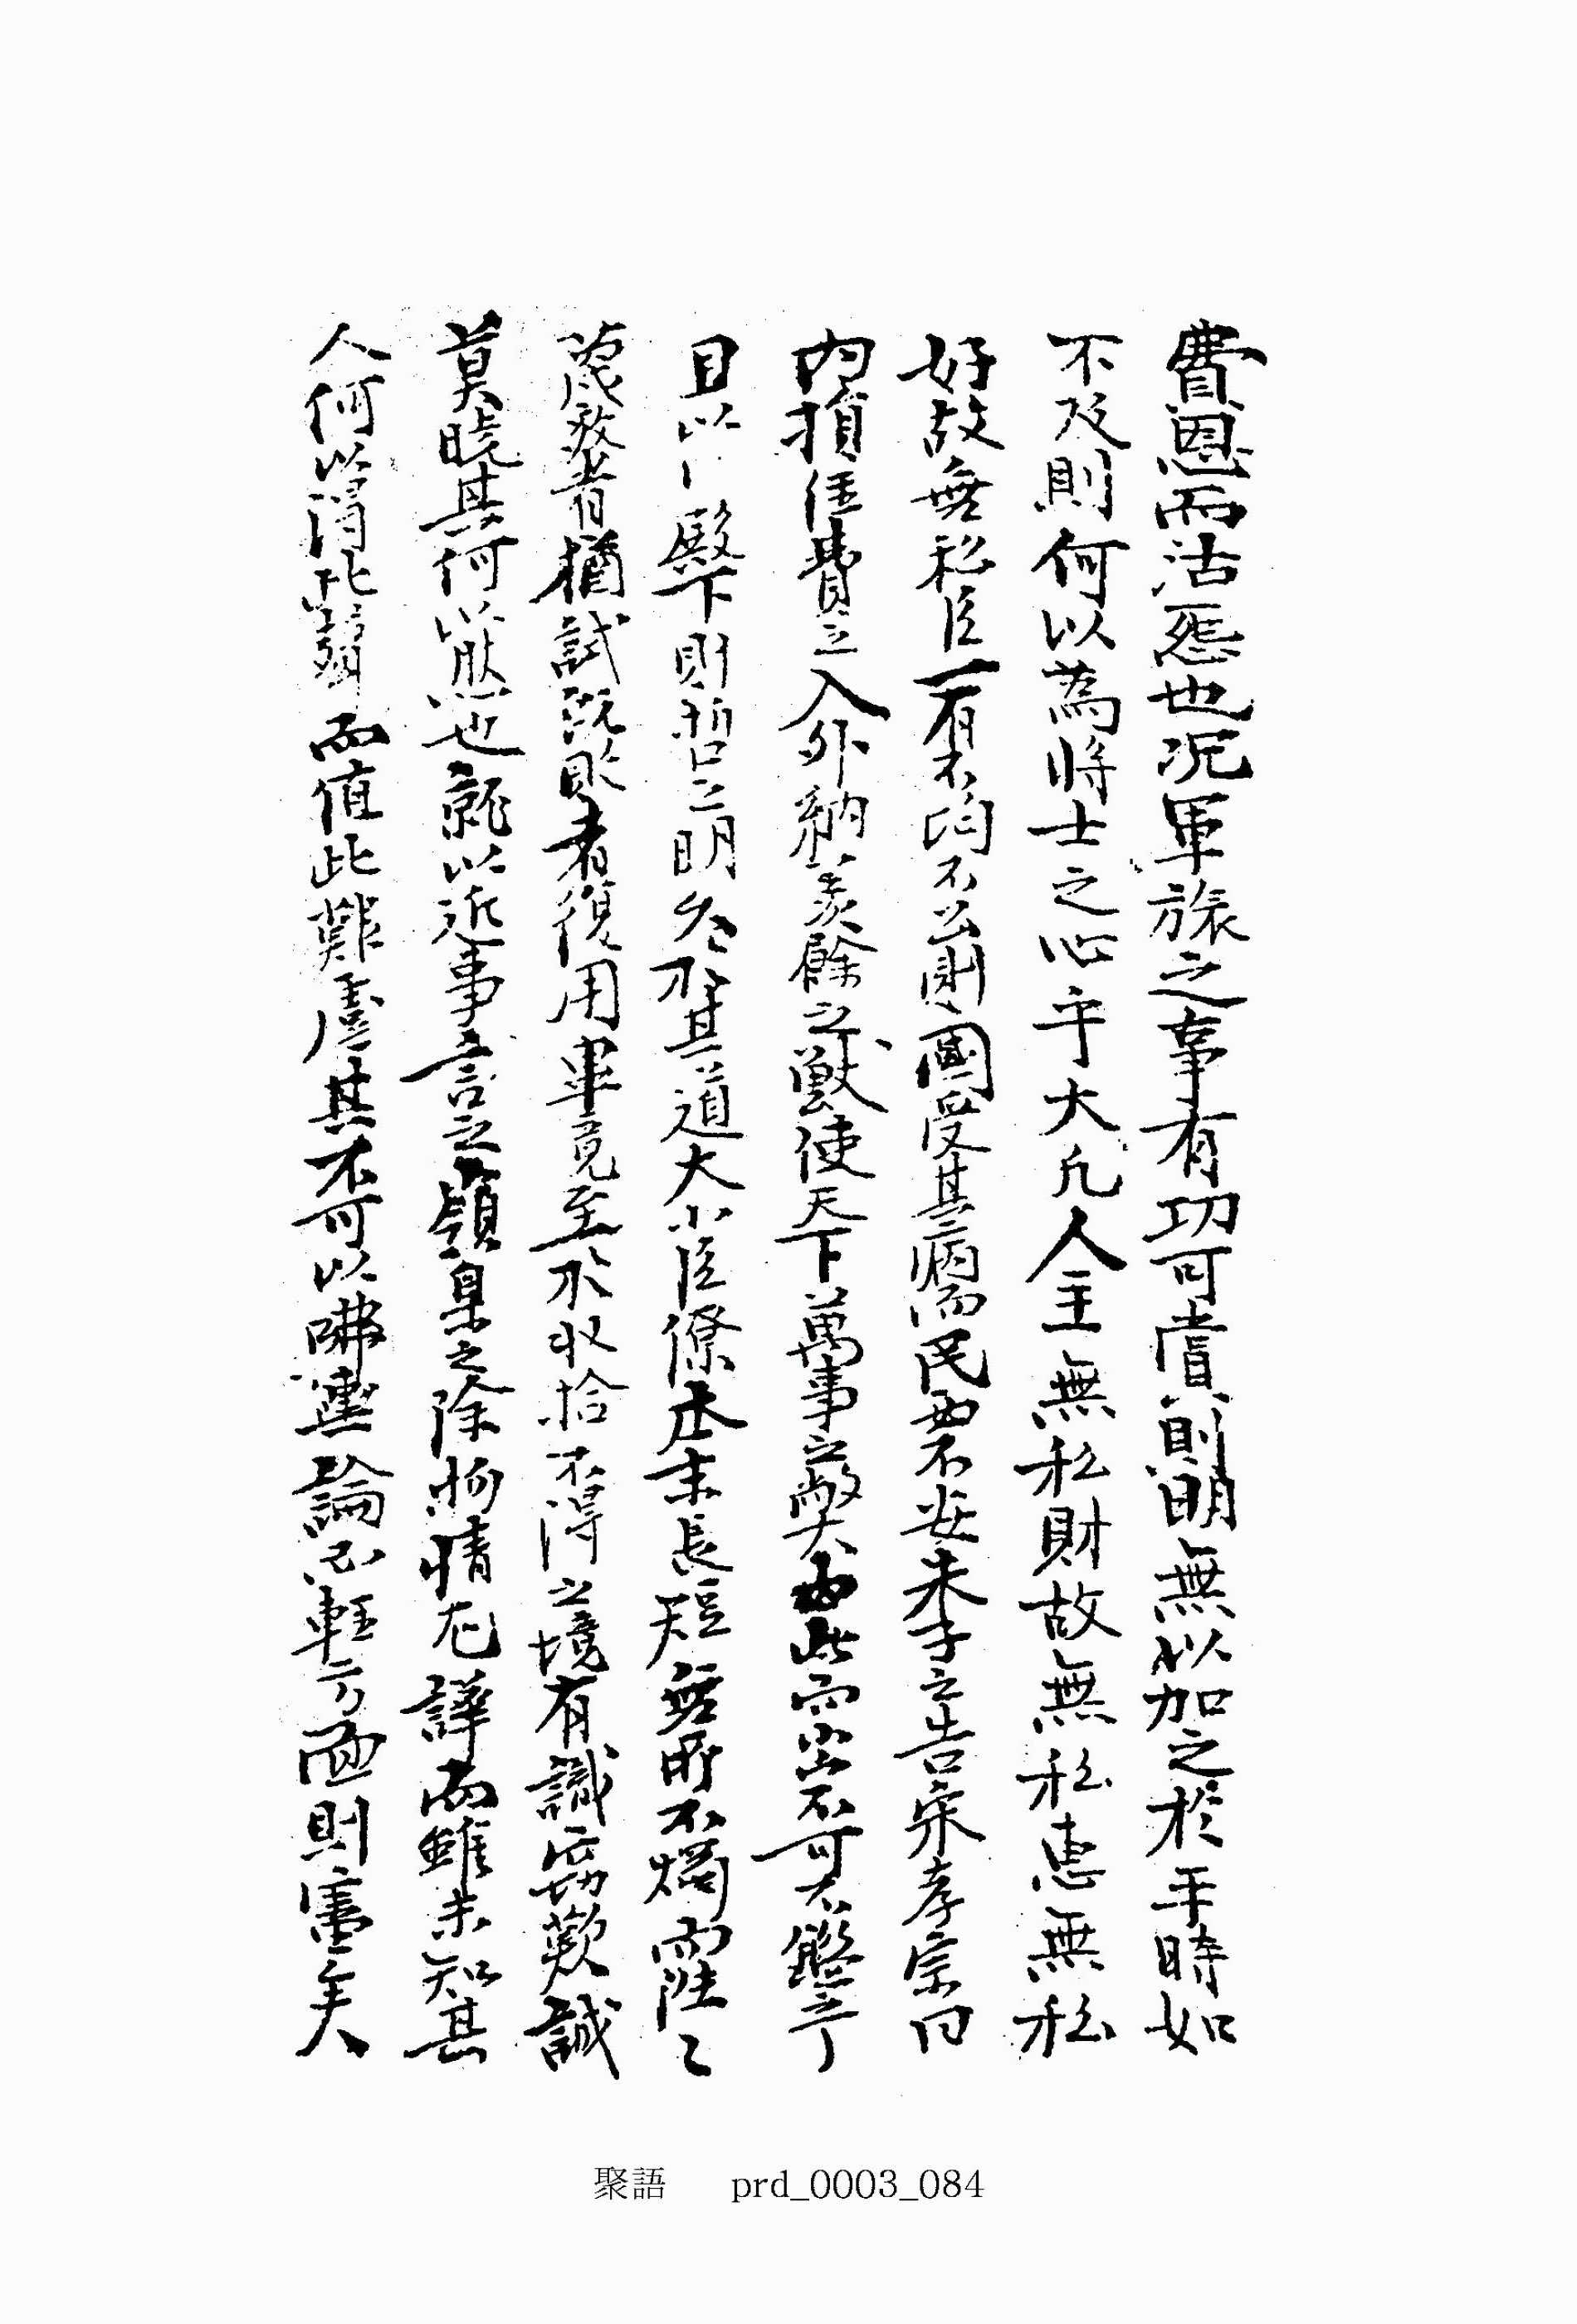 費恩而沽怨也況軍旅之事有功可賞則明無以加之於平時如
不及則何以為將士之心乎大凡人主無私財故無私惠無私
好故無私臣一有不均不公則國受其病而民不安朱子之告宋孝宗曰
內損經費之入外納羨餘之獻使天下萬事之弊由此而出不可不鑑
且以 殿下則哲之明久於其道大小臣僚本末長短無所不燭而陞
者猶試既敗者復用畢竟至於收拾不得之境有識竊歎誠
莫曉其何以然也就以近事言之嶺臬之除物情尤譁而雖未知其
人何以得此 而值此難虞其不可以 輿論而輕方面則審矣
聚語 prd_0003_084